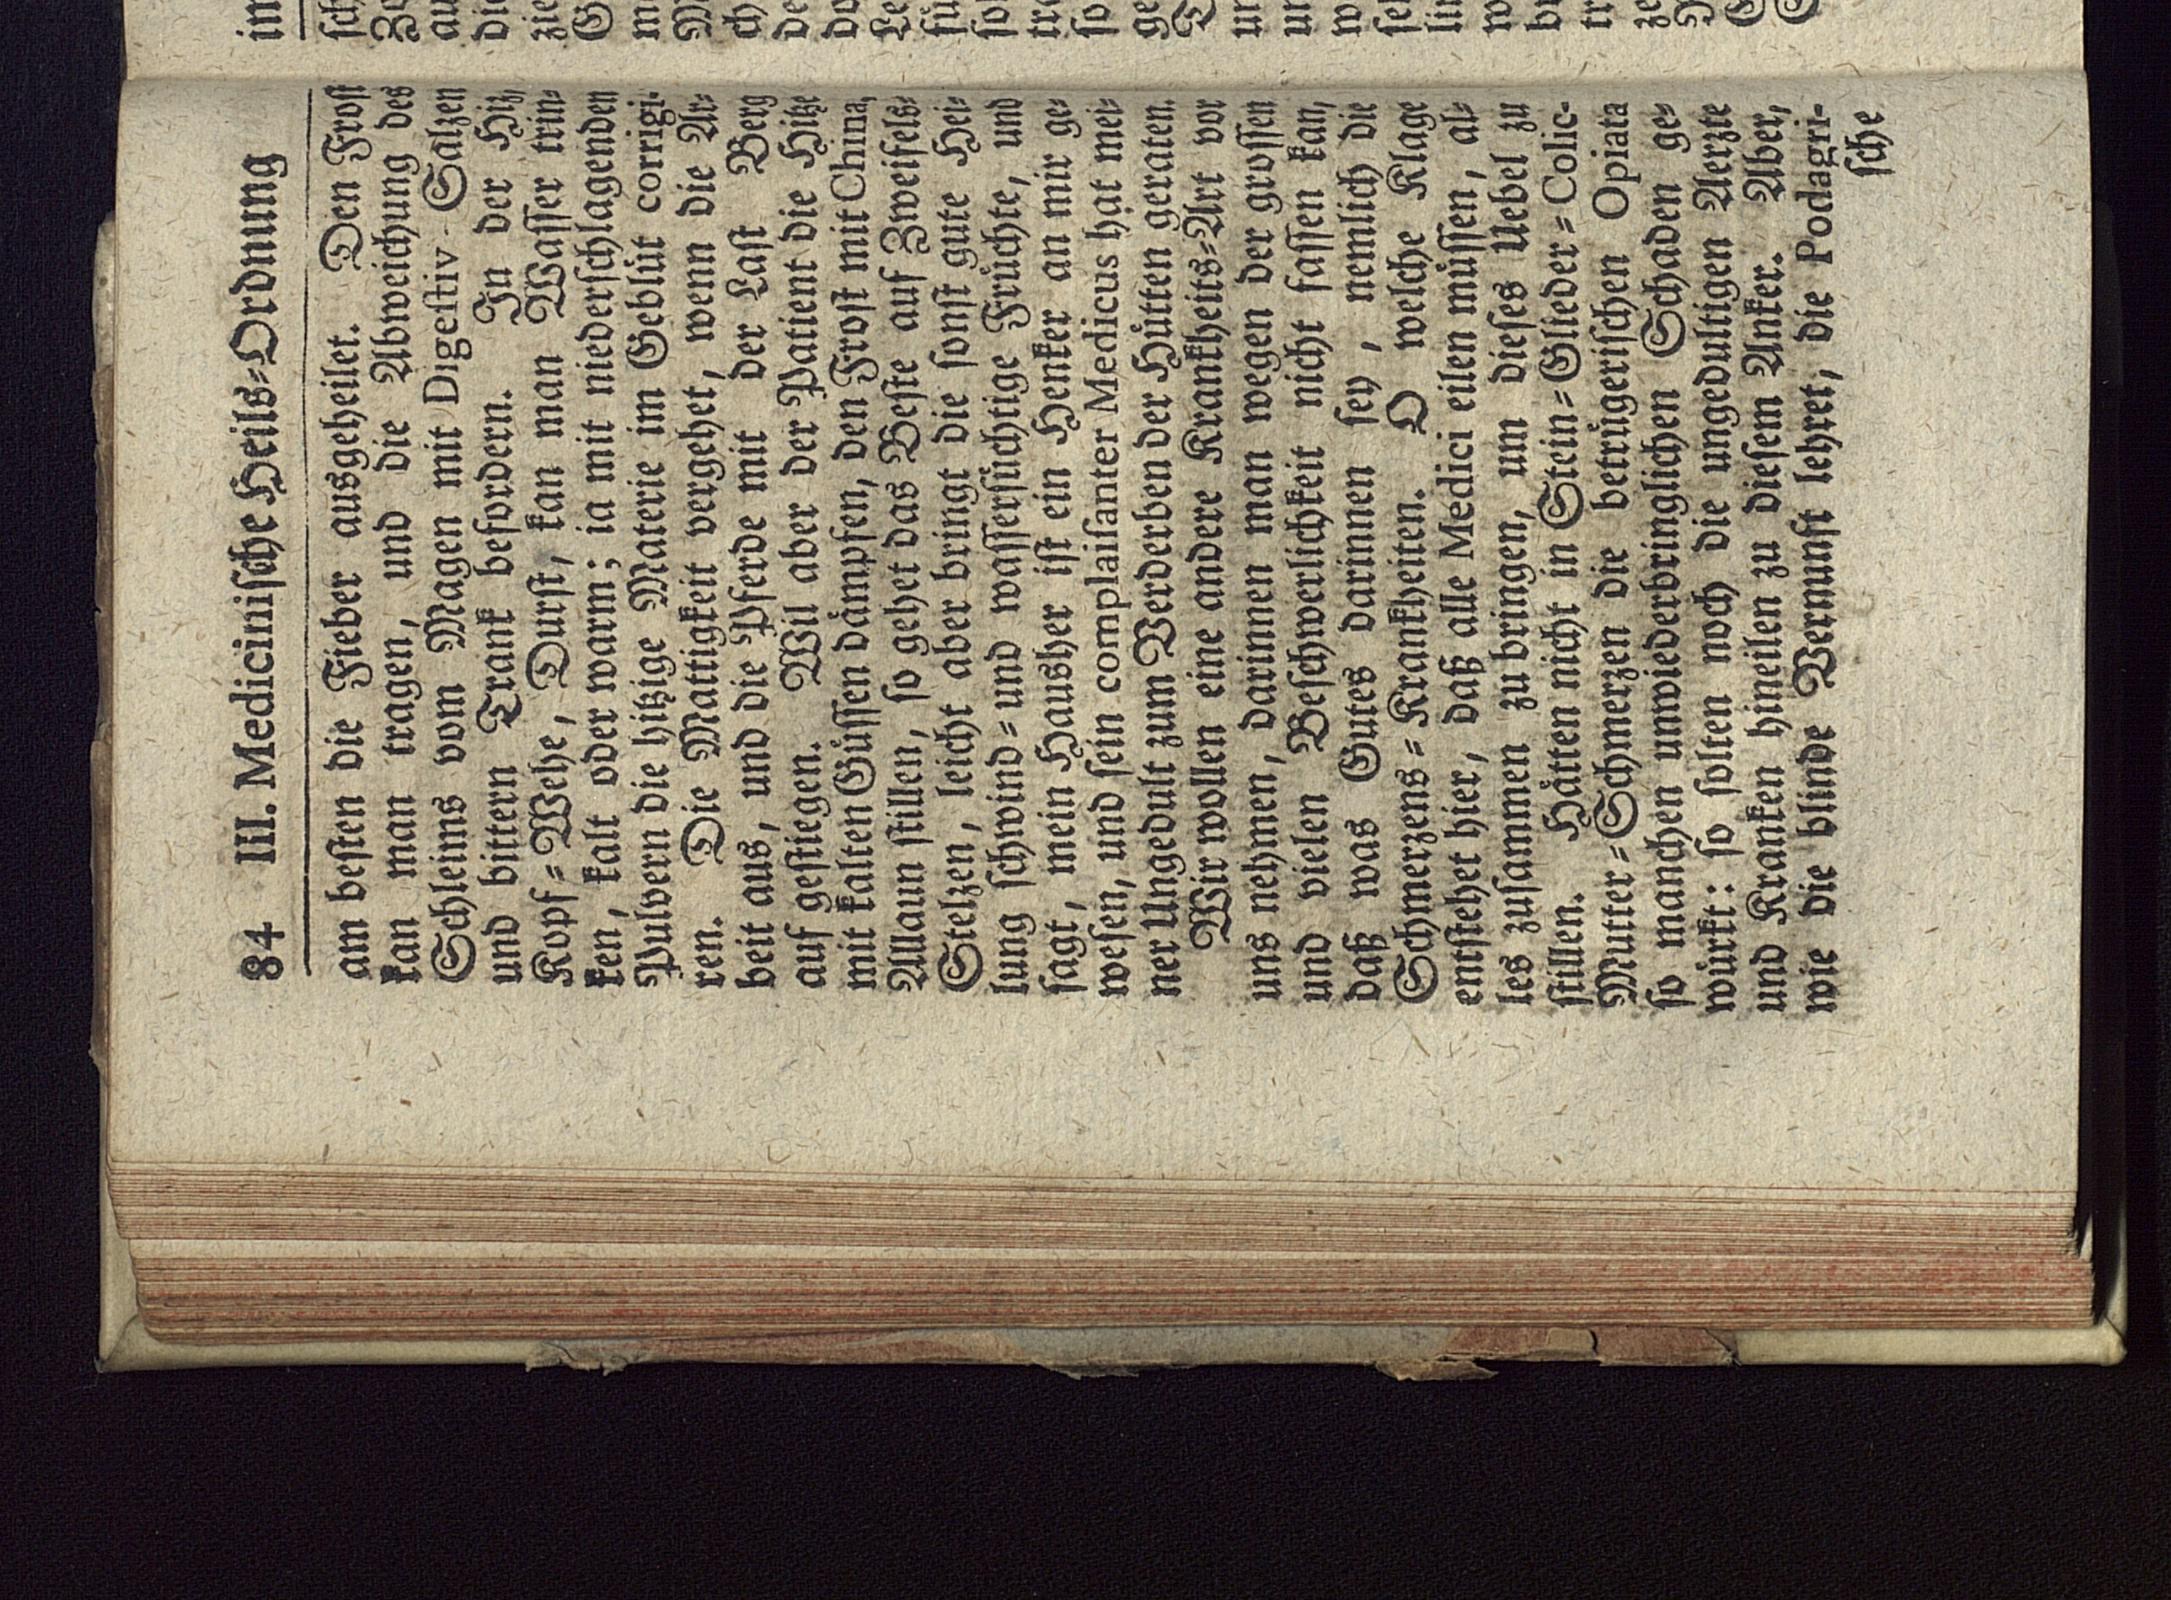 84 III. Medicinische Heils-Ordnung
am besten die Fieber ausgeheilet. Den Frost
kan man tragen, und die Abweichung des
Schleims vom Magen mit Digestiv-Salzen
und bittern Trank befordern. In der Hiz,
Kopf-Wehe, Durst, kan man Wasser trin-
ken, kalt oder warm; ia mit niederschlagenden
Pulvern die hitzige Materie im Geblüt corrigi-
ren. Die Mattigkeit vergehet, wenn die Ar-
beit aus, und die Pferde mit der Last Berg
auf gestiegen. Wil aber der Patient die Hitze
mit kalten Güssen dämpfen, den Frost mit China,
Allaun stillen, so gehet das Beste auf Zweifels-
Stelzen, leicht aber bringt die sonst gute Hei-
lung schwind- und wassersüchtige Früchte, und
sagt, mein Hausher ist ein Henker an mir ge-
wesen, und sein complaisanter Medicus hat mei-
ner Ungedult zum Verderben der Hütten geraten.
Wir wollen eine andere Krankheits-Art vor
uns nehmen, darinnen man wegen der grossen
und vielen Beschwerlichkeit nicht fassen kan,
daß was Gutes darinnen sey, nemlich die
Schmerzens-Krankheiten. O welche Klage
entstehet hier, daß alle Medici eilen müssen, al-
les zusammen zu bringen, um dieses Uebel zu
stillen. Hätten nicht in Stein-Glieder-Colic-
Mutter-Schmerzen die betrügerischen Opiata
so manchen unwiederbringlichen Schaden ge-
würkt: so solten noch die ungedultigen Aerzte
und Kranken hineilen zu diesem Anker. Aber,
wie die blinde Vernunft lehret, die Podagri-
sche